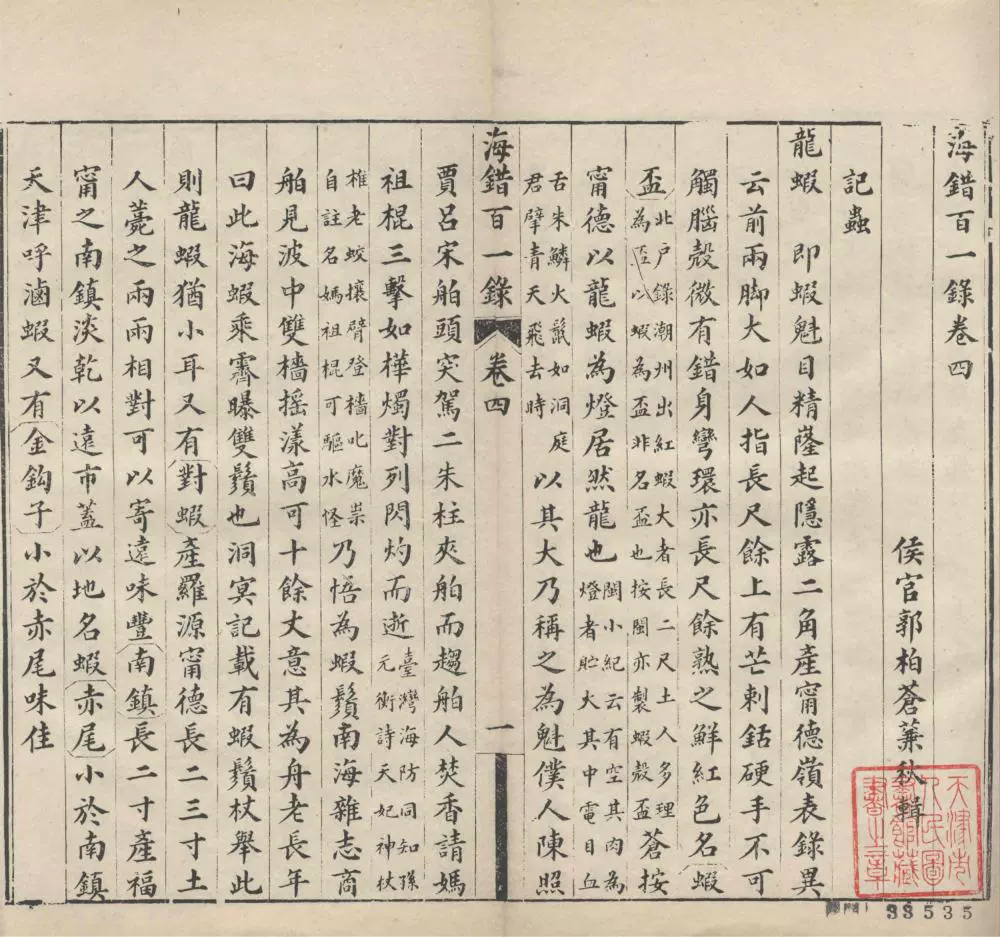 海錯百一錄卷四
侯官郭柏蒼蒹秋輯
記蟲
龍蝦　即蝦魁目精隆起隱露二角產甯德嶺表錄異
云前兩脚大如人指長尺餘上有芒刺銛硬手不可
觸腦殼微有錯身彎環亦長尺餘熟之鮮紅色名蝦
盃北戶錄潮州出紅蝦大者長二尺土人多理為盃以蝦為盃非名盃也按閩亦製蝦殼盃蒼按
甯德以龍蝦為燈居然龍也閩小紀云有空其肉為燈者貯大其中電目血
舌朱鱗火鬛如洞庭君擘青天飛去時以其大乃稱之為魁僕人陳照
海錯百一錄　卷四　一
賈呂宋舶頭突駕二朱柱夾舶而趨舶人焚香請媽
祖棍三擊如樺燭對列閃灼而逝臺灣海防同知孫元衡詩天妃神杖
椎老蛟攘臂登檣叱魔祟自註名媽祖棍可驅水怪乃悟為蝦鬚南海雜志商
舶見波中雙檣搖漾高可十餘丈意其為舟老長年
曰此海蝦乘霽曝雙鬚也洞冥記載有蝦鬚杖舉此
則龍蝦猶小耳又有對蝦產羅源甯德長二三寸土
人薧之兩兩相對可以寄遠味豐南鎮長二寸產福
甯之南鎮淡乾以遠市蓋以地名蝦赤尾小於南鎮
天津呼滷蝦又有金鈎子小於赤尾味佳
天津市人民圖書館藏書之章
33535